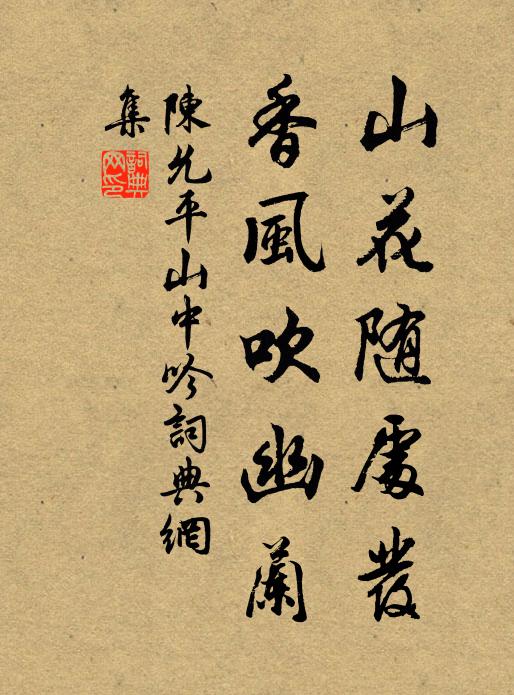 山花随處發
香風吹幽蘭
陳允平山中吟詞典網
集
詞典
网印